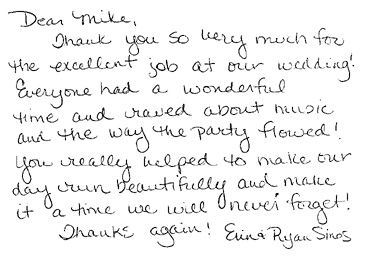 Dear Mike,
Thank you so very much for
the excellent job at our wedding!
Everyone had a wonderful
time and raved about music
and the way the party flowed!
You really helped to make our
day run beautifully and make
it a time we will never forget!
Thanks again! Erin & Ryan Sinos